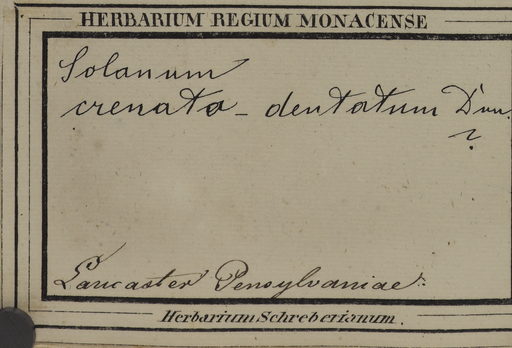 HERBARIUM REGIUM MONACENSE
Solanum
crenata-dentatum Dun.
?
Lancaster Pensylvaniae.
Herbarium Schreberianum.